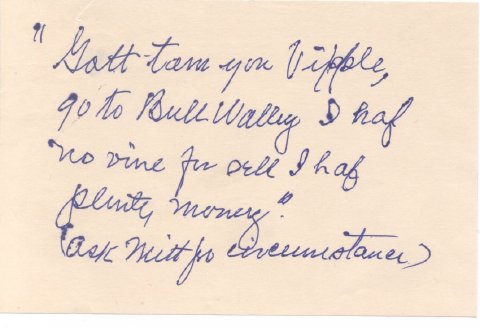 "Gott tam you Vipple,
go to Bull Walley I haf
no vine for sell I haf
plenty money."
(ask Milt for circumstances)